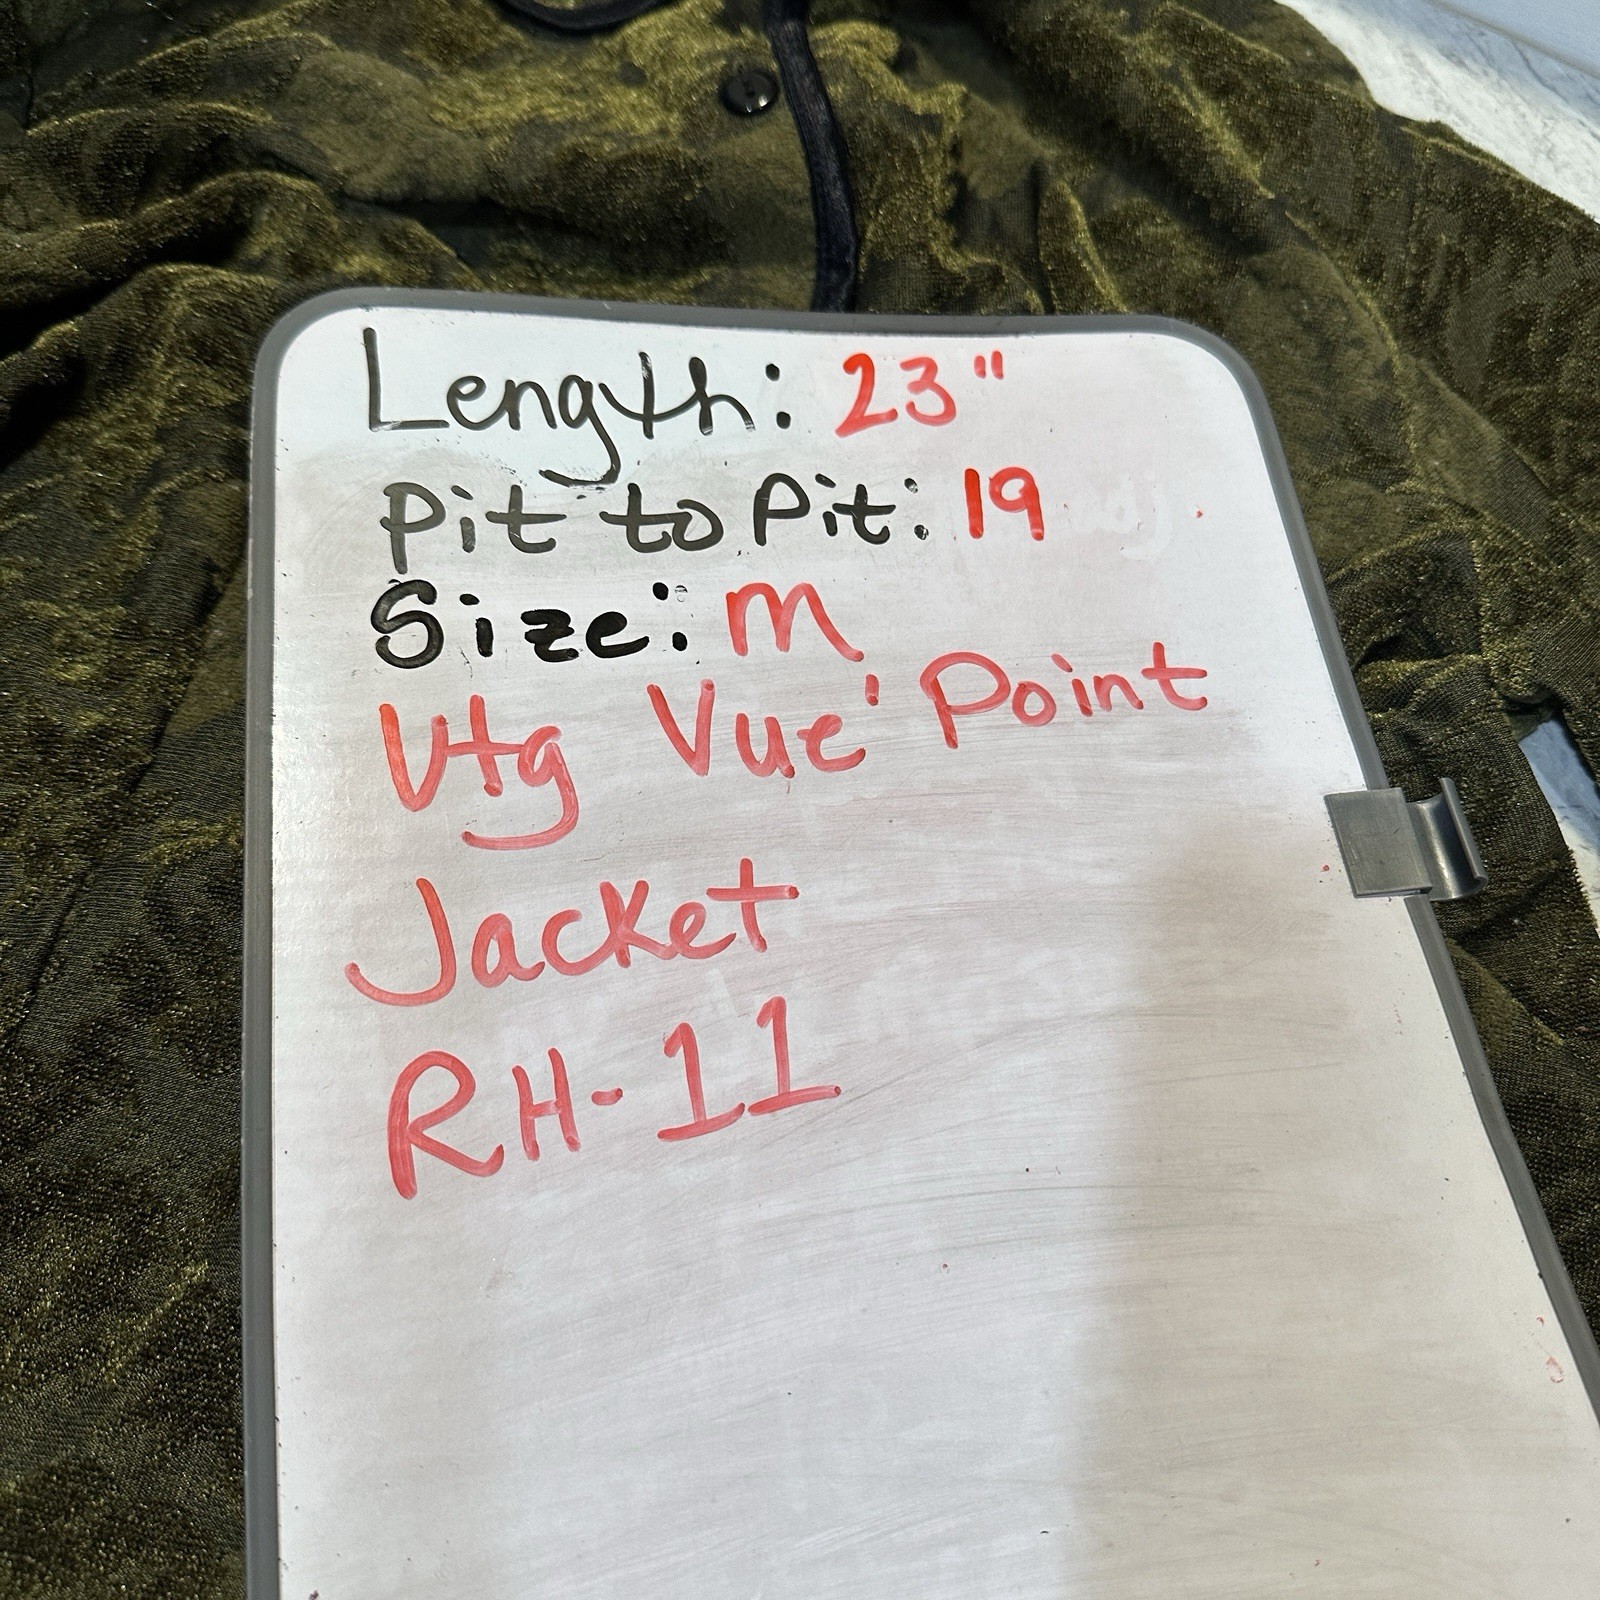 Length: 23"
Pit to Pit: 19
Size: M
Vtg Vue' Point
Jacket
RH-11